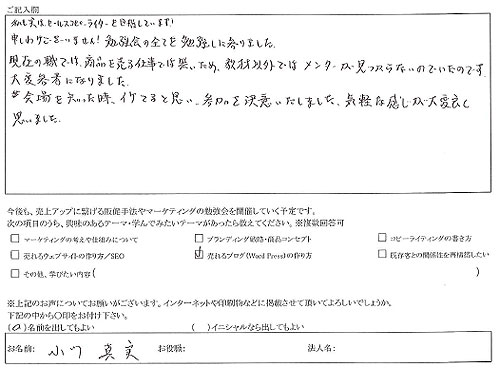 ご記入欄
私も実は、セールスコピーライターを目指しています!
申しわけございません! 勉強会の全てを勉強しに参りました。
現在の職では、商品を売る仕事では無いため、教材以外ではメンターが見つからないのでいたのです。
大変参考になりました。
会場を知った時、行てると思い、参加を決意いたしました。気軽な感じが大変良く
思いました。
今後も、売上アップに繋げる販促手法やマーケティングの勉強会を開催していく予定です。
次の項目のうち、興味のあるテーマ・学んでみたいテーマがあったら教えてください。※複数回答可
□ マーケティングの考えや仕組みについて □ ブランディング戦略・商品コンセプト □ コピーライティングの書き方
□ 売れるウェブサイトの作り方/SEO ☑ 売れるブログ(Word Press)の作り方 □ 既存客との関係性を再構築したい
□ その他、学びたい内容( )
※上記のお声についてお願いがございます。インターネットや印刷物などに掲載させて頂いてよろしいでしょうか。
下記の中から〇印をお付け下さい。
(〇)名前を出してもよい ( )イニシャルなら出してもよい
お名前: 小川 真実 お役職: 法人名: